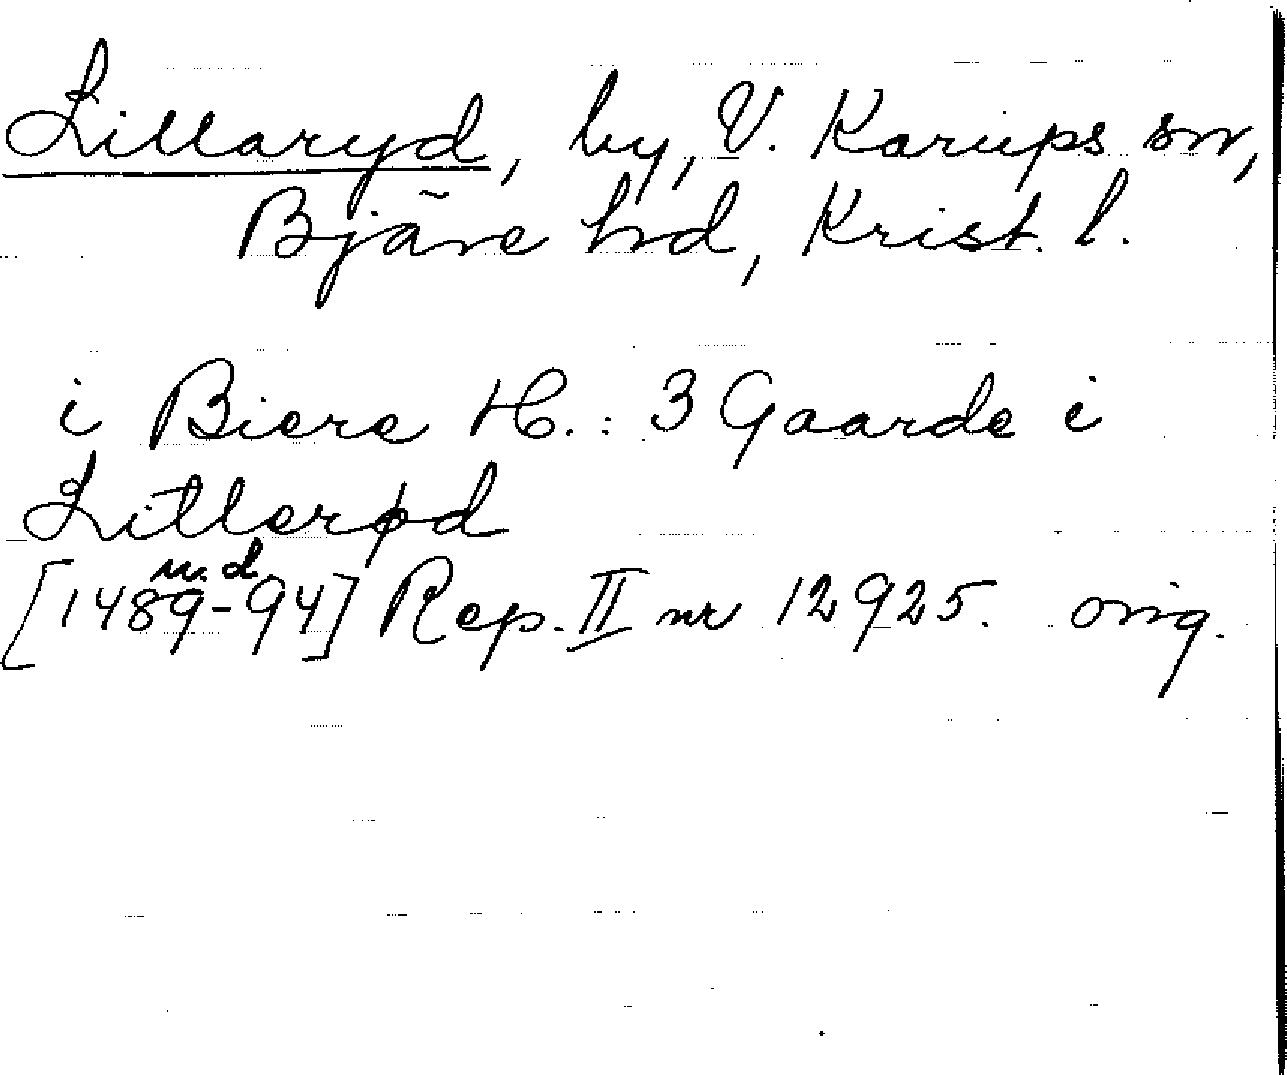 Lillaryd, by, V. Karups sn,
Bjäre hd, Krist. l.
i Biere H.: 3 Gaarde i
Litlerød
u. d
[1489-94] Rep. II nr 12925. orig.